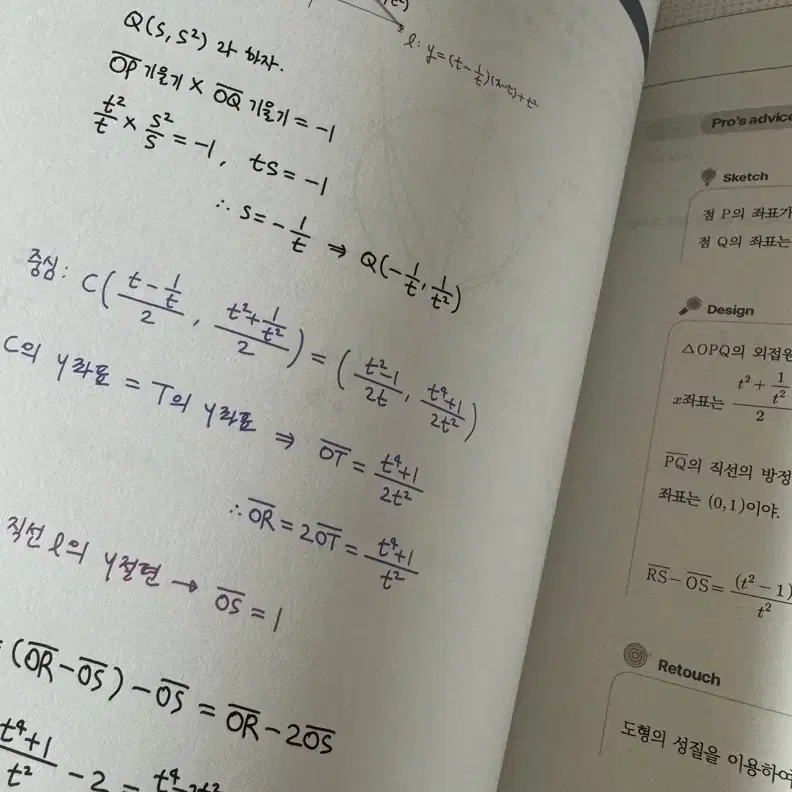 l: y=(t-1/t)(x-t)+t²
Q(s, s²) 라 하자.
OP 기울기 × OQ 기울기 = -1
t²/t × s²/s = -1, ts = -1
∴ s = -1/t ⇒ Q(-1/t, 1/t²)
중심: C((t-1/t)/2, (t²+1/t²)/2) = ((t²-1)/2t, (t⁴+1)/2t²)
C의 y좌표 = T의 y좌표 ⇒ OT = (t⁴+1)/2t²
∴ OR = 2OT = (t⁴+1)/t²
직선 l의 y절편 → OS = 1
= (OR-OS)-OS = OR-2OS
(t⁴+1)/t² - 2 =
Pro's advice
Sketch
점 P의 좌표가
점 Q의 좌표는
Design
△OPQ의 외접원
x좌표는 (t²+1/t²)/2
PQ의 직선의 방정
좌표는 (0, 1)이야.
RS-OS=(t²-1)/t²
Retouch
도형의 성질을 이용하여